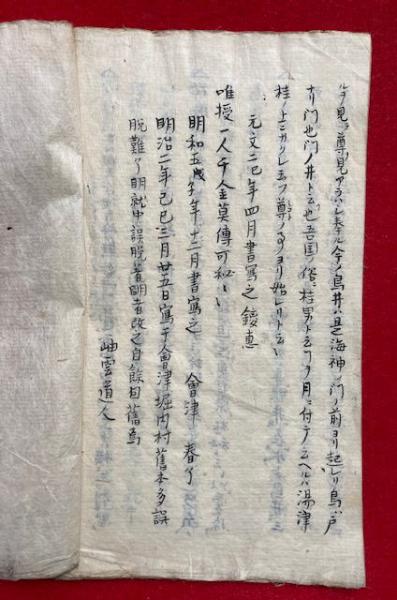 ルヲ見テ尊見アラハレ奉ル今ノ鳥井ハ是海神ノ門ノ前ヨリ起レリ鳥ハ戸
ナリ門也門ノ井ト云也吾国ノ俗桂男ト云フ月ニ付テ云ヘルハ湯津
桂ノ上ニカクレ玉フ尊ノヨリ始レリト云
元文二巳年四月書寫之 鏝惠
唯授一人千金莫傳可秘
明和五戊子年十二月書寫之 會津 春了
明治二年己巳三月廿五日寫于會津堀内村舊本多誤
脱難了明就中誤脱著明者改之自餘旧舊焉
岫雲道人